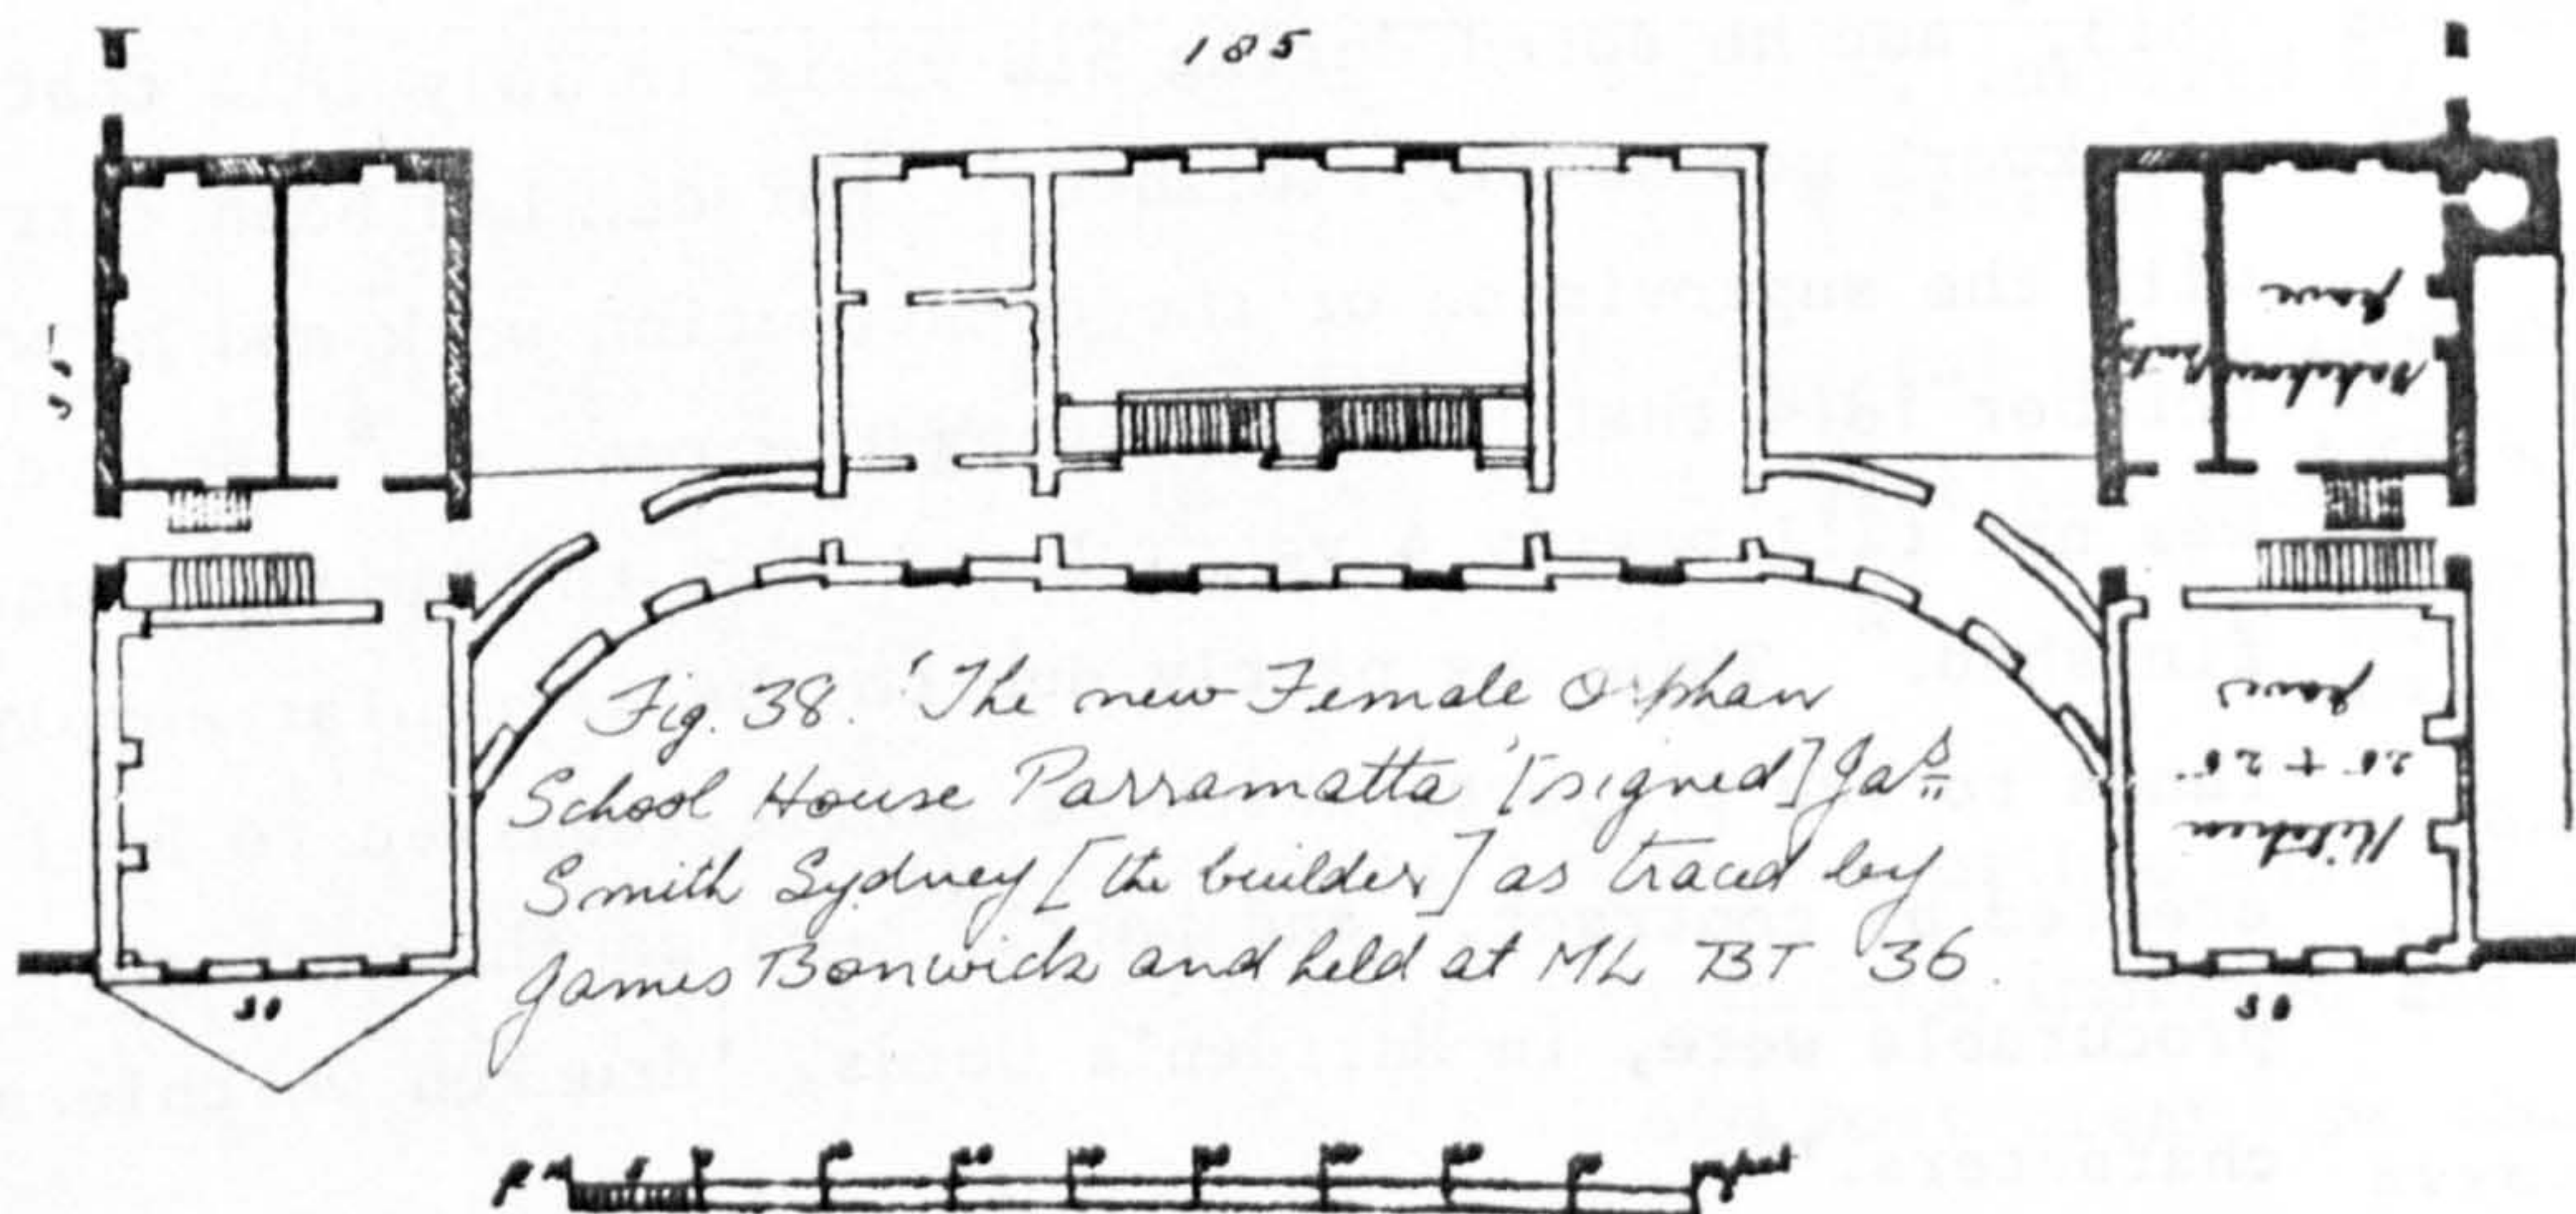 185
55
pave
Bakehouse
Pantry
Fig. 38. 'The new Female Orphan
School House Parramatta' [signed] Jas
Smith Sydney [the builder] as traced by
James Bonwick and held at ML BT 36.
paved
28 + 28
Kitchen
30
30
feet